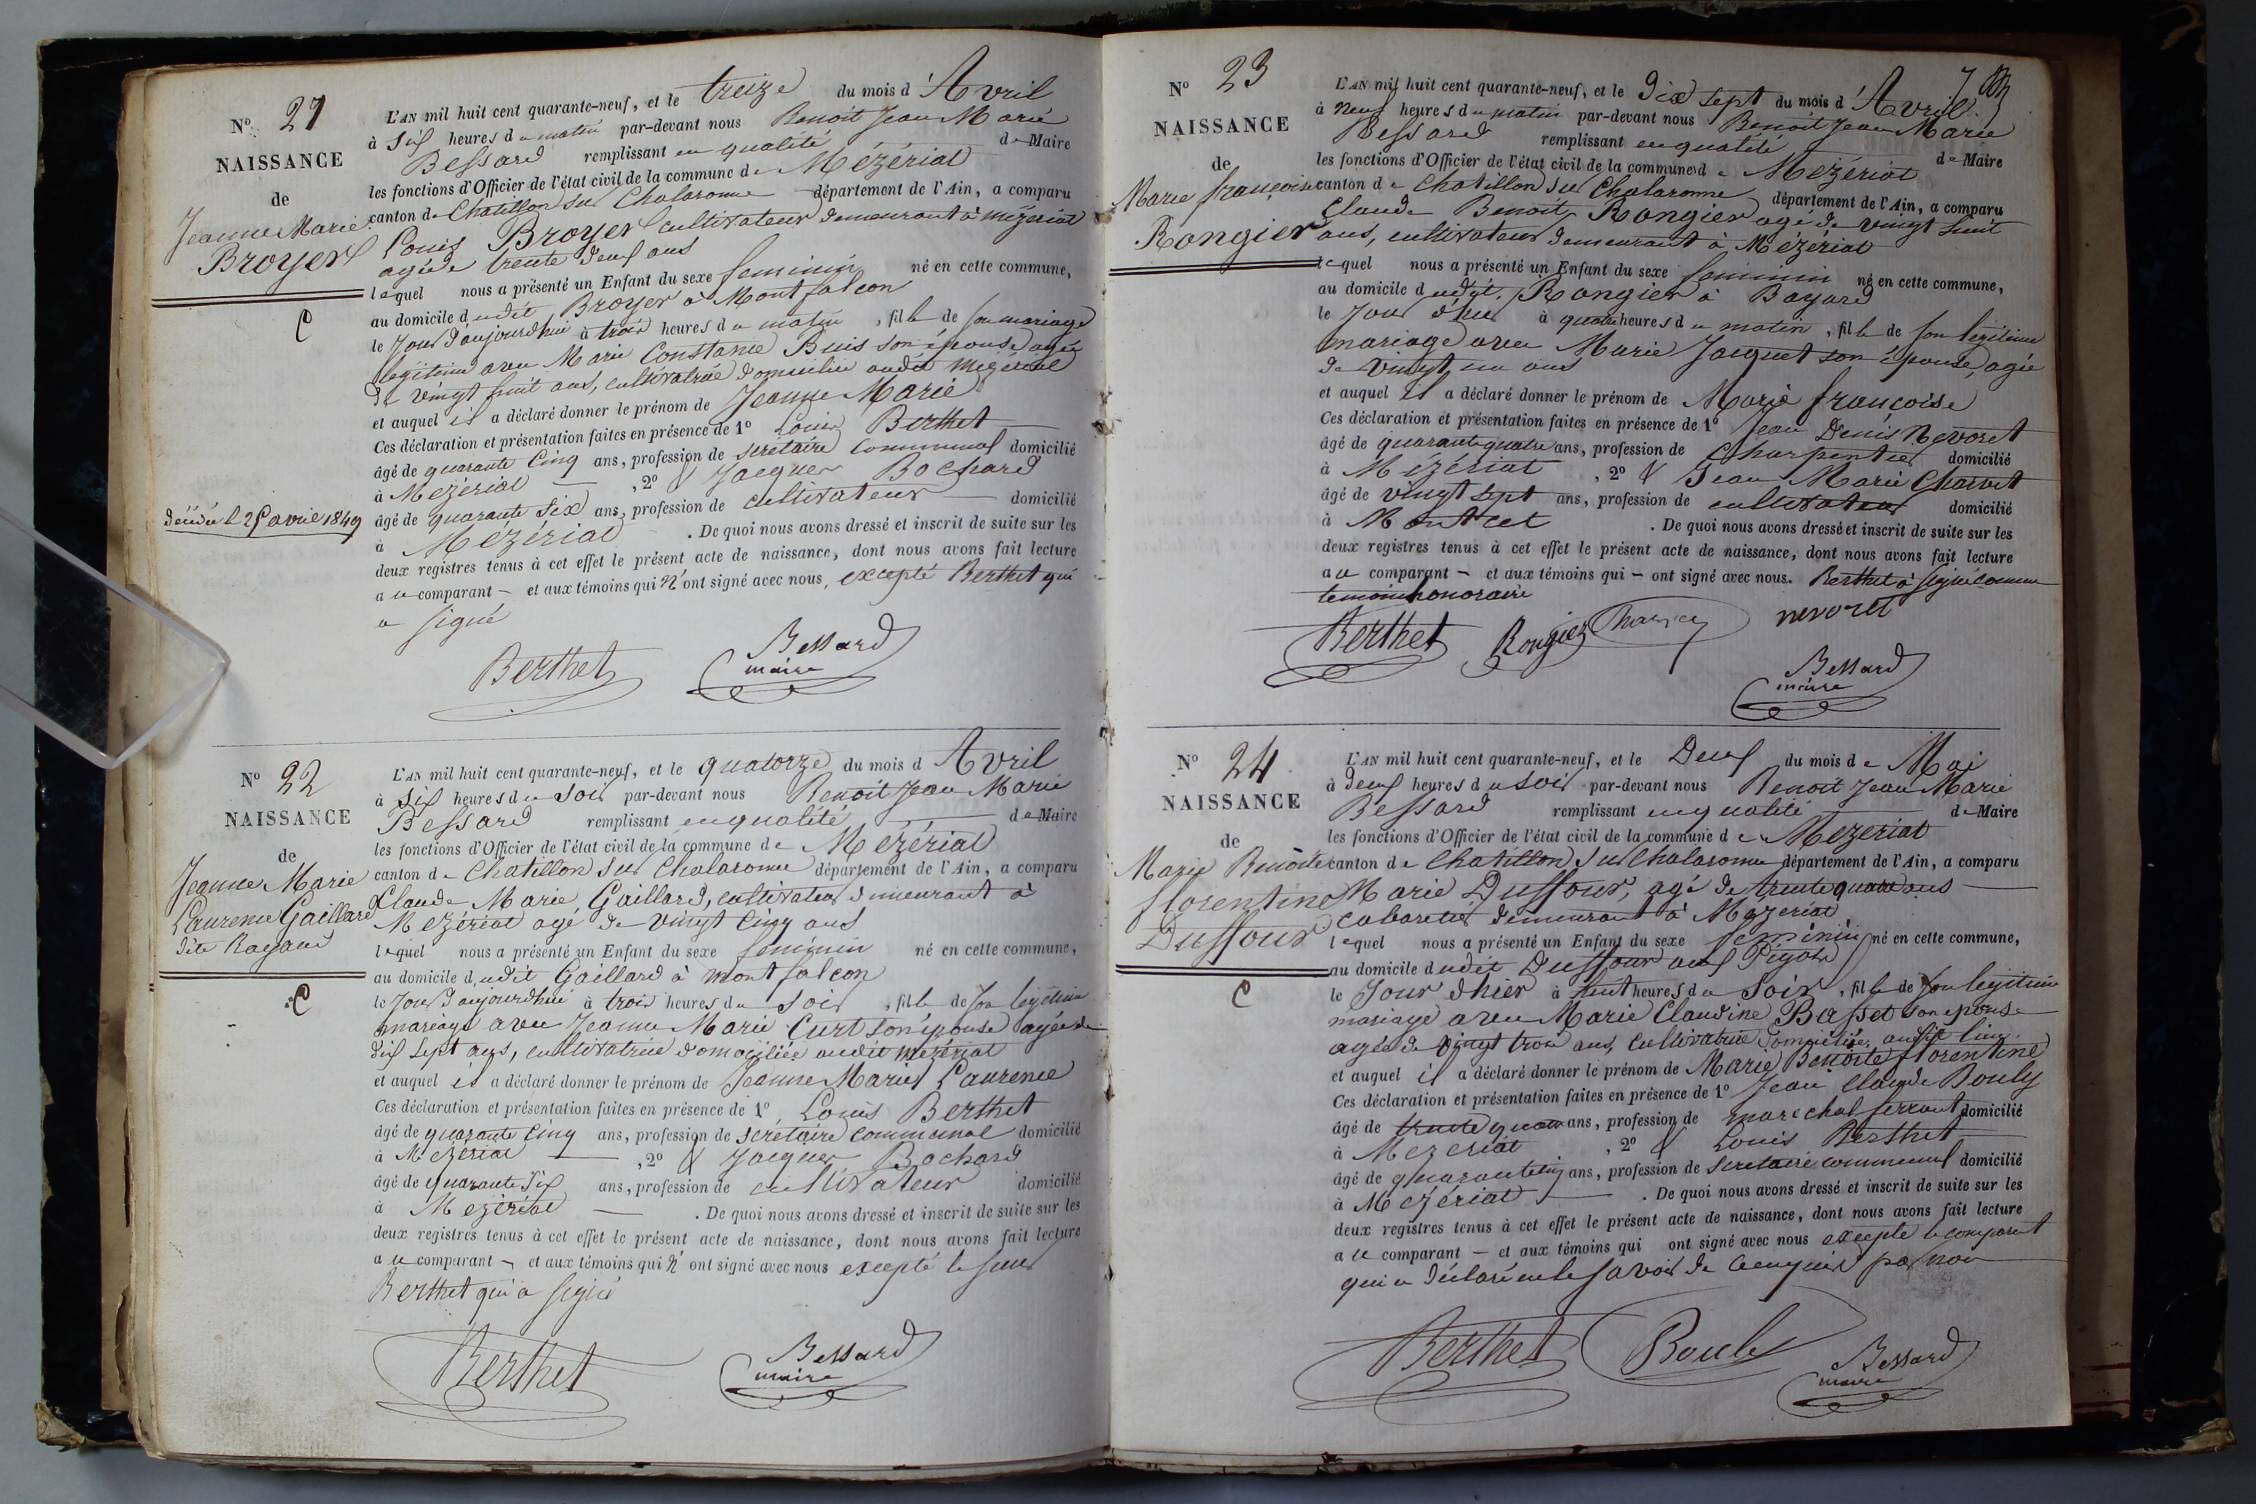 N° 21
NAISSANCE
de
Jeanne Marie
Broyer
C
décédée le 25 avril 1849
L'AN mil huit cent quarante-neuf, et le treize du mois d'Avril
à six heures du matin par-devant nous Benoit Jean Marie
Bessard remplissant en qualité de Maire
les fonctions d'Officier de l'état civil de la commune de Mézériat
canton de Chatillon sur Chalaronne département de l'Ain, a comparu
Louis Broyer cultivateur demeurant à Mézériat
agé de trente deux ans
lequel nous a présenté un Enfant du sexe feminin né en cette commune,
au domicile dudit Broyer à Montfalcon
le jour d'aujourdhui à trois heures du matin, fille de son mariage
légitime avec Marie Constance Buis son épouse agée
de vingt huit ans, cultivatrice domiciliée audit Mézériat
et auquel il a déclaré donner le prénom de Jeanne Marie
Ces déclaration et présentation faites en présence de 1° Louis Berthet
âgé de quarante cinq ans, profession de secrétaire communal domicilié
à Mézériat, 2° & Jacques Bochard
âgé de quarante six ans, profession de cultivateur domicilié
à Mézériat. De quoi nous avons dressé et inscrit de suite sur les
deux registres tenus à cet effet le présent acte de naissance, dont nous avons fait lecture
au comparant – et aux témoins qui n'ont signé avec nous, excepté Berthet qui
a signé
Berthet Bessard
maire
N° 22
NAISSANCE
de
Jeanne Marie
Laurence Gaillard
dite Rayand
C
L'AN mil huit cent quarante-neuf, et le quatorze du mois d'Avril
à six heures du soir par-devant nous Benoit Jean Marie
Bessard remplissant en qualité de Maire
les fonctions d'Officier de l'état civil de la commune de Mézériat
canton de Chatillon sur Chalaronne département de l'Ain, a comparu
Claude Marie Gaillard, cultivateur demeurant à
Mézériat agé de vingt cinq ans
lequel nous a présenté un Enfant du sexe feminin né en cette commune,
au domicile dudit Gaillard à montfalcon
le jour d'aujourdhui à trois heures du soir, fille de son légitime
mariage avec Jeanne Marie Curt son épouse agée de
dix sept ans, cultivatrice domiciliée audit mézériat
et auquel il a déclaré donner le prénom de Jeanne Marie Laurence
Ces déclaration et présentation faites en présence de 1° Louis Berthet
âgé de quarante cinq ans, profession de secrétaire communal domicilié
à Mézériat, 2° & Jacques Bochard
âgé de quarante six ans, profession de cultivateur domicilié
à Mézériat. De quoi nous avons dressé et inscrit de suite sur les
deux registres tenus à cet effet le présent acte de naissance, dont nous avons fait lecture
au comparant – et aux témoins qui n'ont signé avec nous excepté le sieur
Berthet qui a signé
Berthet Bessard
maire
N° 23
NAISSANCE
de
Marie françoise
Rongier
L'AN mil huit cent quarante-neuf, et le Dix sept du mois d'Avril
à neuf heures du matin par-devant nous Benoit Jean Marie
Bessard remplissant en qualité de Maire
les fonctions d'Officier de l'état civil de la commune de Mézériat
canton de Chatillon sur Chalaronne département de l'Ain, a comparu
Claude Benoit Rongier agé de vingt huit
ans, cultivateur demeurant à Mézériat
lequel nous a présenté un Enfant du sexe feminin né en cette commune,
au domicile dudit Rongier à Bayard
le jour d'hier à quatre heures du matin, fille de son légitime
mariage avec Marie Jacquet son épouse, agée
de vingt un ans
et auquel il a déclaré donner le prénom de Marie françoise
Ces déclaration et présentation faites en présence de 1° Jean Denis Nevoret
âgé de quarante quatre ans, profession de Charpentier domicilié
à Mézériat, 2° & Jean Marie Charvet
âgé de vingt sept ans, profession de cultivateur domicilié
à Montcet. De quoi nous avons dressé et inscrit de suite sur les
deux registres tenus à cet effet le présent acte de naissance, dont nous avons fait lecture
au comparant – et aux témoins qui – ont signé avec nous. Berthet à signé comme
temoin honoraire
Berthet Rongier nevoret
Bessard
maire
N° 24
NAISSANCE
de
Marie Benoite
florentine
Duffour
C
L'AN mil huit cent quarante-neuf, et le Deux du mois de Mai
à deux heures du soir par-devant nous Benoit Jean Marie
Bessard remplissant en qualité de Maire
les fonctions d'Officier de l'état civil de la commune de Mezeriat
canton de Chatillon sur Chalaronne département de l'Ain, a comparu
Marie Duffour, agé de trente quatre ans
cabaretier demeurant à Mezeriat
lequel nous a présenté un Enfant du sexe feminin né en cette commune,
au domicile dudit Duffour aux
le jour d'hier à huit heures du soir, fille de son légitime
mariage avec Marie Claudine Basset son épouse
agée de vingt trois ans, cultivatrice domiciliée audit lieu
et auquel il a déclaré donner le prénom de Marie Benoite florentine
Ces déclaration et présentation faites en présence de 1° Jean Claude Bouly
âgé de trente quatre ans, profession de marechal ferrant domicilié
à Mezeriat, 2° & Louis Berthet
âgé de quarante cinq ans, profession de secretaire communal domicilié
à Mézériat. De quoi nous avons dressé et inscrit de suite sur les
deux registres tenus à cet effet le présent acte de naissance, dont nous avons fait lecture
au comparant – et aux témoins qui ont signé avec nous excepté le comparant
qui a déclaré ne le savoir de ce enquis par nou
Berthet Bouly Bessard
maire